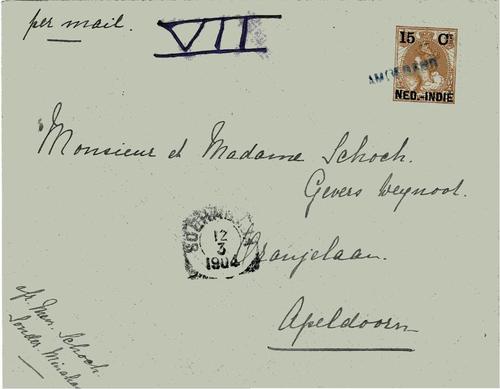 per mail.
VII
15 Ct
NED.-INDIË
AMOERANG
Monsieur et Madame Schoch.
Gevers Deynoot.
Oranjelaan.
Apeldoorn
SOERABAJA
12
3
1904
afz. Mevr. Schoch.
Sonder. Minaha